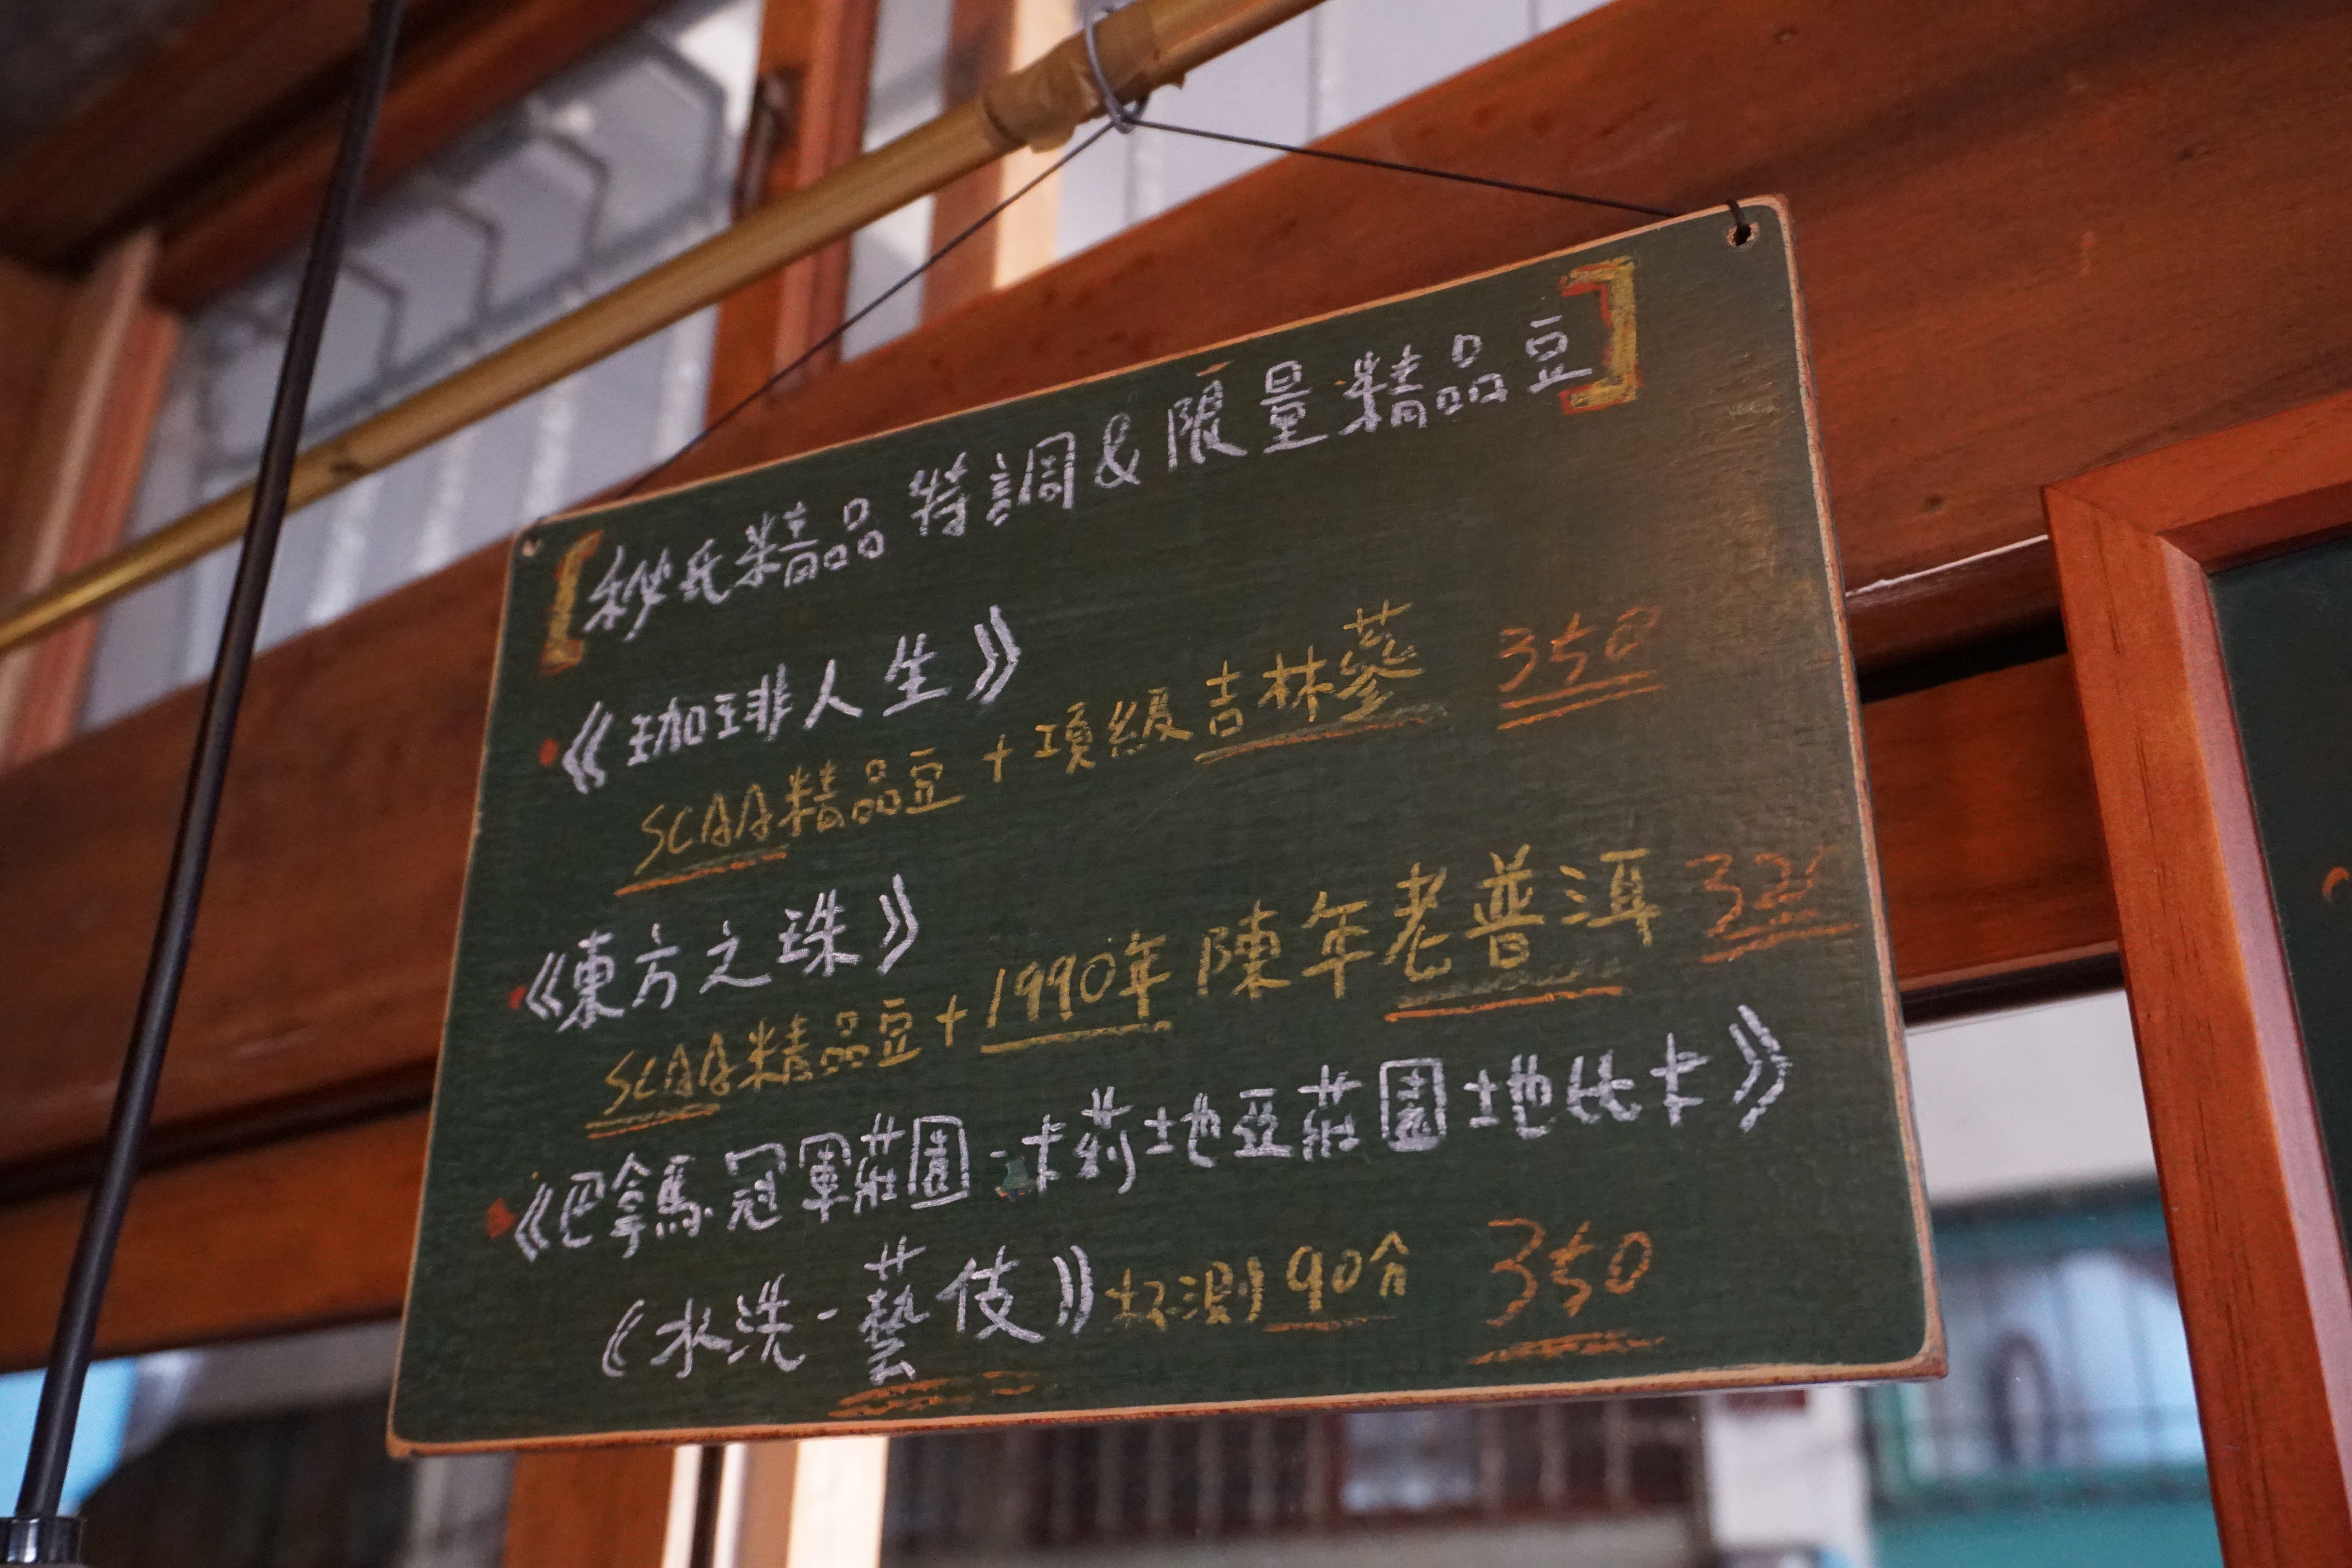 【秘氏精品特調&限量精品豆】
·《珈琲人生》
SCAA精品豆+頂級吉林蔘 350
·《東方之珠》
SCAA精品豆+1990年陳年老普洱
·《巴拿馬.冠軍莊園-卡莉地亞莊園地比卡》
《水洗-藝伎》杯測90分 350